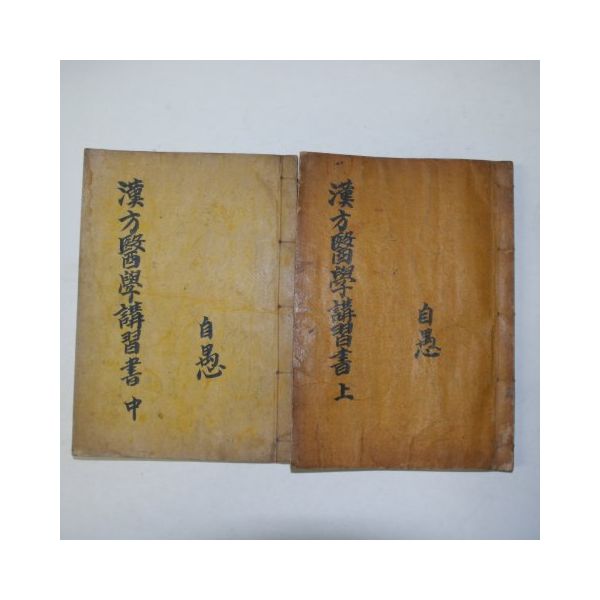 漢方醫學講習書 上
自愚
漢方醫學講習書 中
自愚